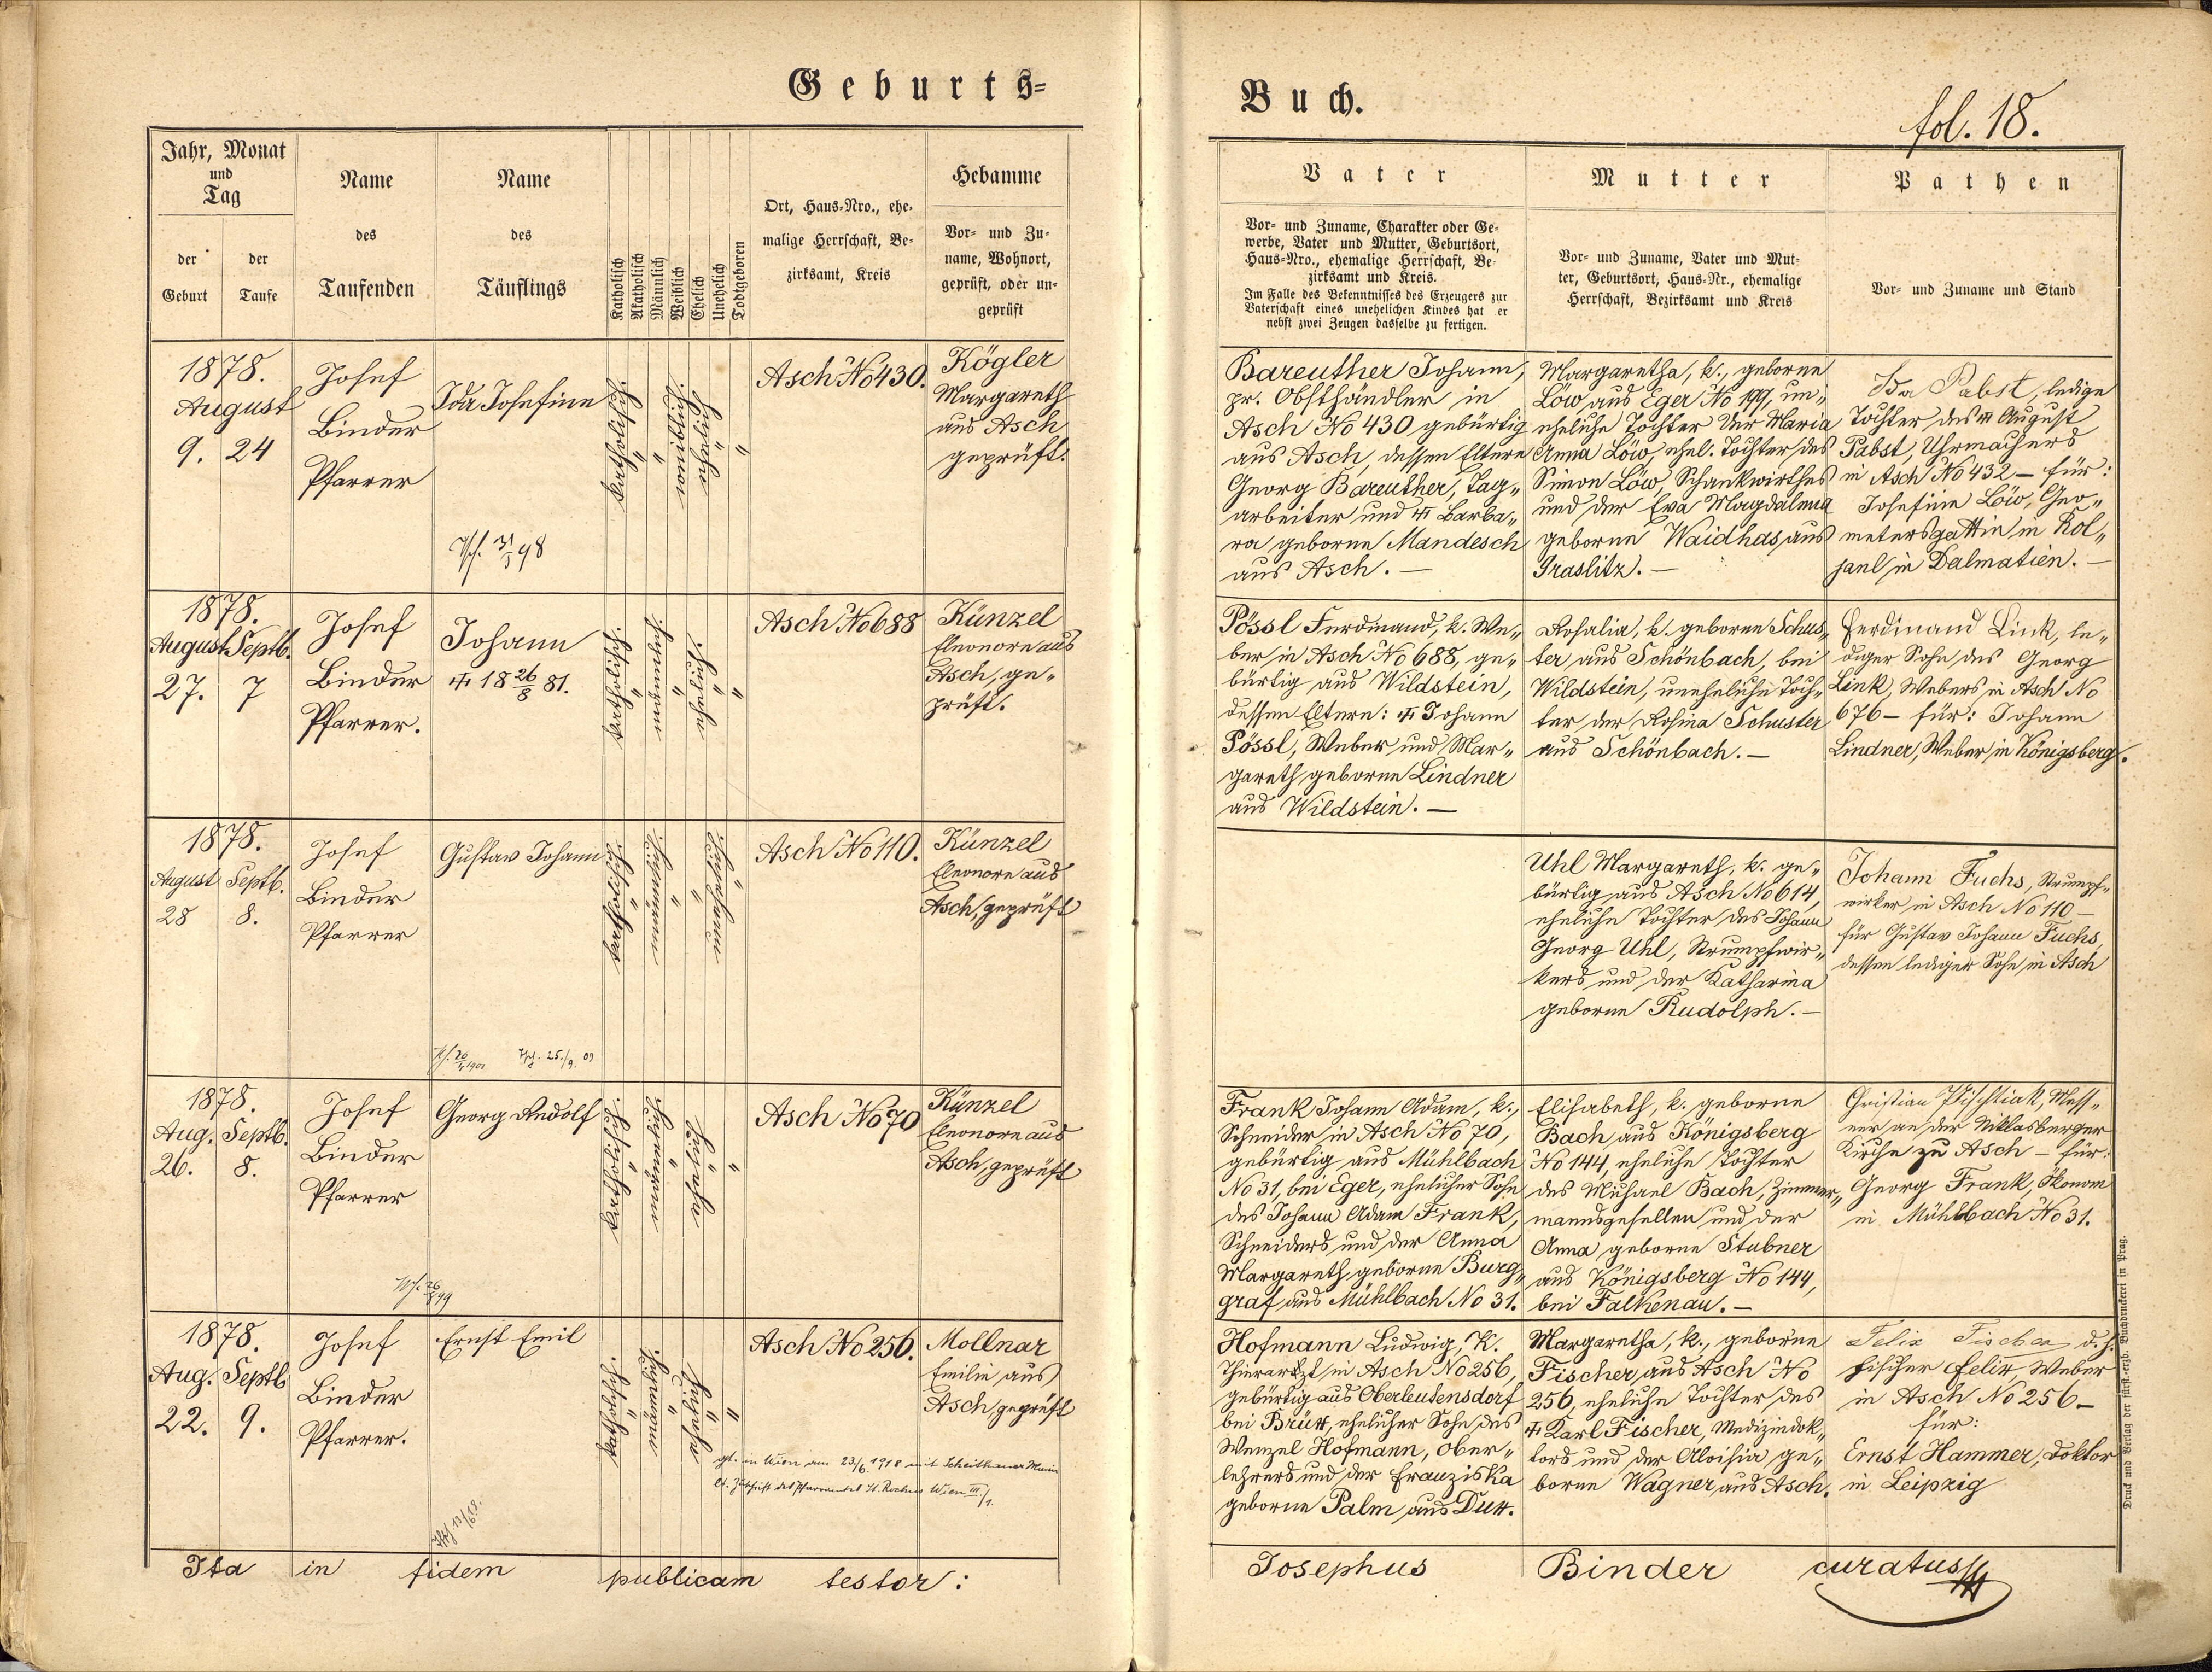 Geburts-
Buch.
fol. 18.
Jahr, Monat
und
Tag
der Geburt
der Taufe
Name
des
Taufenden
Name
des
Täuflings
Katholisch
Akatholisch
Männlich
Weiblich
Ehelich
Unehelich
Todtgeboren
Ort, Haus-Nro., ehe-
malige Herrschaft, Be-
zirksamt, Kreis
Hebamme
Vor- und Zu-
name, Wohnort,
geprüft, oder un-
geprüft
Vater
Vor- und Zuname, Charakter oder Ge-
werbe, Vater und Mutter, Geburtsort,
Haus-Nro., ehemalige Herrschaft, Be-
zirksamt und Kreis.
Im Falle des Bekenntnisses des Erzeugers zur
Vaterschaft eines unehelichen Kindes hat er
nebst zwei Zeugen dasselbe zu fertigen.
Mutter
Vor- und Zuname, Vater und Mut-
ter, Geburtsort, Haus-Nr., ehemalige
Herrschaft, Bezirksamt und Kreis
Pathen
Vor- und Zuname und Stand
1878.
August
9. 24
Josef
Binder
Pfarrer
Ida Josefine
31/3 98
Katholisch
"
"
ehelich
"
Asch No 430.
Kögler
Margareth
aus Asch
geprüft.
Bareuther Johann,
pr. Obsthändler in
Asch No 430 gebürtig
aus Asch, dessen Eltern
Georg Bareuther, Tag„
arbeiter und ☩ Barba„
ra geborne Mandesch
aus Asch. —
Margaretha, k., geborne
Löw aus Eger No 199, un„
eheliche Tochter der Maria
Anna Löw, ehel. Tochter des
Simon Löw, Schankwirthes
und der Eva Magdalena
geborne Waidhas aus
Graslitz. —
Ida Pabst, ledige
Tochter des ☩ August
Pabst, Uhrmachers
in Asch No 432 – für:
Josefine Löw, Geo„
metersgattin in
in Dalmatien. —
1878.
August Septb.
27. 7
Josef
Binder
Pfarrer.
Johann
☩ 18 26/8 81.
Katholisch
"
"
"
Asch No 688
Künzel
Eleonore aus
Asch, ge„
prüft.
Pössl Ferdinand, k. We„
ber in Asch No 688, ge„
bürtig aus Wildstein,
dessen Eltern: ☩ Johann
Pössl, Weber und Mar„
gareth geborne Lindner
aus Wildstein. —
Rosalia, k. geborne Schus„
ter aus Schönbach, bei
Wildstein, uneheliche Toch„
ter der Rosina Schuster
aus Schönbach. —
Ferdinand Link, le„
diger Sohn des Georg
Link, Webers in Asch No
676 – für: Johann
Lindner, Weber in Königsberg.
1878.
August Septb.
28 8.
Josef
Binder
Pfarrer
Gustav Johann
25./9. 09
Katholisch
"
"
"
"
Asch No 110.
Künzel
Eleonore aus
Asch, geprüft
Uhl Margareth, k. ge„
bürtig aus Asch No 614,
eheliche Tochter des Johann
Georg Uhl, Strumpfwir„
kers und der Katharina
geborne Rudolph. —
Johann Fuchs, Strumpf„
wirker in Asch No 110 –
für Gustav Johann Fuchs,
dessen lediger Sohn in Asch
1878.
Aug. Septb.
26. 8.
Josef
Binder
Pfarrer
Georg Rudolf
Katholisch
"
"
"
Asch No 70
Künzel
Eleonore aus
Asch, geprüft
Frank Johann Adam, k.,
Schneider in Asch No 70,
gebürtig aus Mühlbach
No 31, bei Eger, ehelicher Sohn
des Johann Adam Frank,
Schneiders und der Anna
Margareth geborne Burg„
graf aus Mühlbach No 31.
Elisabeth, k. geborne
Bach aus Königsberg
No 144, eheliche Tochter
des Michael Bach, Zimmer„
mannsgesellen und der
Anna geborne Stubner
aus Königsberg No 144,
bei Falkenau. —
Christian, Mess„
ner an der Niklasberger
Kirche zu Asch – für:
Georg Frank, Ökonom
in Mühlbach No 31.
1878.
Aug. Septb
22. 9.
Josef
Binder
Pfarrer.
Ernst Emil
Katholisch
"
"
"
Asch No 256.
Mollnar
Emilie aus
Asch, geprüft
gt. in Wien am 23/6 1918 mit Scheithauer Marie
lt. Zuschrift des Pfarramtes St. Rochus Wien III/1.
Hofmann Ludwig, K.
Thierartzt in Asch No 256,
gebürtig aus Oberleutensdorf
bei Brüx, ehelicher Sohn des
Wenzel Hofmann, Ober„
lehrers und der Franziska
geborne Palm aus Dux.
Margaretha, k., geborne
Fischer aus Asch No
256, eheliche Tochter des
☩ Karl Fischer, Medizindok„
tors und der Aloisia ge„
borne Wagner aus Asch.
Felix Fischer d. J.
Fischer Felix, Weber
in Asch No 256 –
für:
Ernst Hammer, Doktor
in Leipzig
Ita in fidem publicam testor:
Josephus Binder curatus
Druck und Verlag der fürst.-erzb. Buchdruckerei in Prag.